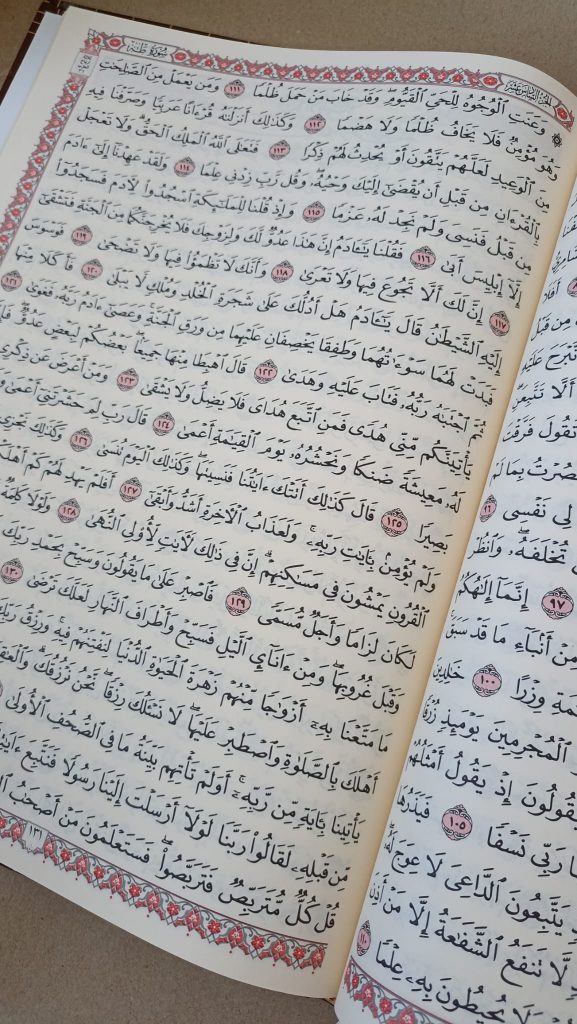 سُورَةُ طه
الجُزْءُ السَّادِسَ عَشَرَ
۞ وَعَنَتِ ٱلْوُجُوهُ لِلْحَىِّ ٱلْقَيُّومِ وَقَدْ خَابَ مَنْ حَمَلَ ظُلْمًا ١١١ وَمَن يَعْمَلْ مِنَ ٱلصَّٰلِحَٰتِ
وَهُوَ مُؤْمِنٌ فَلَا يَخَافُ ظُلْمًا وَلَا هَضْمًا ١١٢ وَكَذَٰلِكَ أَنزَلْنَٰهُ قُرْءَانًا عَرَبِيًّا وَصَرَّفْنَا فِيهِ
مِنَ ٱلْوَعِيدِ لَعَلَّهُمْ يَتَّقُونَ أَوْ يُحْدِثُ لَهُمْ ذِكْرًا ١١٣ فَتَعَٰلَى ٱللَّهُ ٱلْمَلِكُ ٱلْحَقُّ وَلَا تَعْجَلْ
بِٱلْقُرْءَانِ مِن قَبْلِ أَن يُقْضَىٰٓ إِلَيْكَ وَحْيُهُۥ وَقُل رَّبِّ زِدْنِى عِلْمًا ١١٤ وَلَقَدْ عَهِدْنَآ إِلَىٰٓ ءَادَمَ
مِن قَبْلُ فَنَسِىَ وَلَمْ نَجِدْ لَهُۥ عَزْمًا ١١٥ وَإِذْ قُلْنَا لِلْمَلَٰٓئِكَةِ ٱسْجُدُوا۟ لِءَادَمَ فَسَجَدُوٓا۟
إِلَّآ إِبْلِيسَ أَبَىٰ ١١٦ فَقُلْنَا يَٰٓـَٔادَمُ إِنَّ هَٰذَا عَدُوٌّ لَّكَ وَلِزَوْجِكَ فَلَا يُخْرِجَنَّكُمَا مِنَ ٱلْجَنَّةِ فَتَشْقَىٰٓ
١١٧ إِنَّ لَكَ أَلَّا تَجُوعَ فِيهَا وَلَا تَعْرَىٰ ١١٨ وَأَنَّكَ لَا تَظْمَؤُا۟ فِيهَا وَلَا تَضْحَىٰ ١١٩ فَوَسْوَسَ
إِلَيْهِ ٱلشَّيْطَٰنُ قَالَ يَٰٓـَٔادَمُ هَلْ أَدُلُّكَ عَلَىٰ شَجَرَةِ ٱلْخُلْدِ وَمُلْكٍ لَّا يَبْلَىٰ ١٢٠ فَأَكَلَا مِنْهَا
فَبَدَتْ لَهُمَا سَوْءَٰتُهُمَا وَطَفِقَا يَخْصِفَانِ عَلَيْهِمَا مِن وَرَقِ ٱلْجَنَّةِ وَعَصَىٰٓ ءَادَمُ رَبَّهُۥ فَغَوَىٰ ١٢١
ثُمَّ ٱجْتَبَٰهُ رَبُّهُۥ فَتَابَ عَلَيْهِ وَهَدَىٰ ١٢٢ قَالَ ٱهْبِطَا مِنْهَا جَمِيعًۢا بَعْضُكُمْ لِبَعْضٍ عَدُوٌّ
يَأْتِيَنَّكُم مِّنِّى هُدًى فَمَنِ ٱتَّبَعَ هُدَاىَ فَلَا يَضِلُّ وَلَا يَشْقَىٰ ١٢٣ وَمَنْ أَعْرَضَ عَن ذِكْرِى
لَهُۥ مَعِيشَةً ضَنكًا وَنَحْشُرُهُۥ يَوْمَ ٱلْقِيَٰمَةِ أَعْمَىٰ ١٢٤ قَالَ رَبِّ لِمَ حَشَرْتَنِىٓ أَعْمَىٰ
بَصِيرًا ١٢٥ قَالَ كَذَٰلِكَ أَتَتْكَ ءَايَٰتُنَا فَنَسِيتَهَا وَكَذَٰلِكَ ٱلْيَوْمَ تُنسَىٰ ١٢٦ وَكَذَٰلِكَ نَجْزِى
وَلَمْ يُؤْمِنۢ بِـَٔايَٰتِ رَبِّهِۦ وَلَعَذَابُ ٱلْءَاخِرَةِ أَشَدُّ وَأَبْقَىٰٓ ١٢٧ أَفَلَمْ يَهْدِ لَهُمْ كَمْ
ٱلْقُرُونِ يَمْشُونَ فِى مَسَٰكِنِهِمْ إِنَّ فِى ذَٰلِكَ لَءَايَٰتٍ لِّأُو۟لِى ٱلنُّهَىٰ ١٢٨ وَلَوْلَا كَلِمَةٌ
لَكَانَ لِزَامًا وَأَجَلٌ مُّسَمًّى ١٢٩ فَٱصْبِرْ عَلَىٰ مَا يَقُولُونَ وَسَبِّحْ بِحَمْدِ رَبِّكَ
وَقَبْلَ غُرُوبِهَا وَمِنْ ءَانَآئِ ٱلَّيْلِ فَسَبِّحْ وَأَطْرَافَ ٱلنَّهَارِ لَعَلَّكَ تَرْضَىٰ ١٣٠
مَا مَتَّعْنَا بِهِۦٓ أَزْوَٰجًا مِّنْهُمْ زَهْرَةَ ٱلْحَيَوٰةِ ٱلدُّنْيَا لِنَفْتِنَهُمْ فِيهِ وَرِزْقُ رَبِّكَ
أَهْلَكَ بِٱلصَّلَوٰةِ وَٱصْطَبِرْ عَلَيْهَا لَا نَسْـَٔلُكَ رِزْقًا نَّحْنُ نَرْزُقُكَ
يَأْتِينَا بِـَٔايَةٍ مِّن رَّبِّهِۦٓ أَوَلَمْ تَأْتِهِم بَيِّنَةُ مَا فِى ٱلصُّحُفِ ٱلْأُولَىٰ
مِّن قَبْلِهِۦ لَقَالُوا۟ رَبَّنَا لَوْلَآ أَرْسَلْتَ إِلَيْنَا رَسُولًا فَنَتَّبِعَ
قُلْ كُلٌّ مُّتَرَبِّصٌ فَتَرَبَّصُوا۟ فَسَتَعْلَمُونَ مَنْ أَصْحَٰبُ
أَفَلَا
مِن قَبْلُ
نَّبْرَحَ عَلَيْهِ
أَلَّا تَتَّبِعَنِ
تَقُولَ فَرَّقْتَ
بَصُرْتُ بِمَا لَمْ
لِى نَفْسِى ٩٦
تُخْلَفَهُۥ وَٱنظُرْ
٩٧ إِنَّمَآ إِلَٰهُكُمُ
مِنْ أَنۢبَآءِ مَا قَدْ سَبَقَ
وِزْرًا ١٠٠ خَٰلِدِينَ
ٱلْمُجْرِمِينَ يَوْمَئِذٍ زُرْقًا
يَقُولُونَ إِذْ يَقُولُ أَمْثَلُهُمْ
رَبِّى نَسْفًا ١٠٥ فَيَذَرُهَا
يَتَّبِعُونَ ٱلدَّاعِىَ لَا عِوَجَ لَهُۥ
لَّا تَنفَعُ ٱلشَّفَٰعَةُ إِلَّا مَنْ أَذِنَ
يُحِيطُونَ بِهِۦ عِلْمًا ١١٠